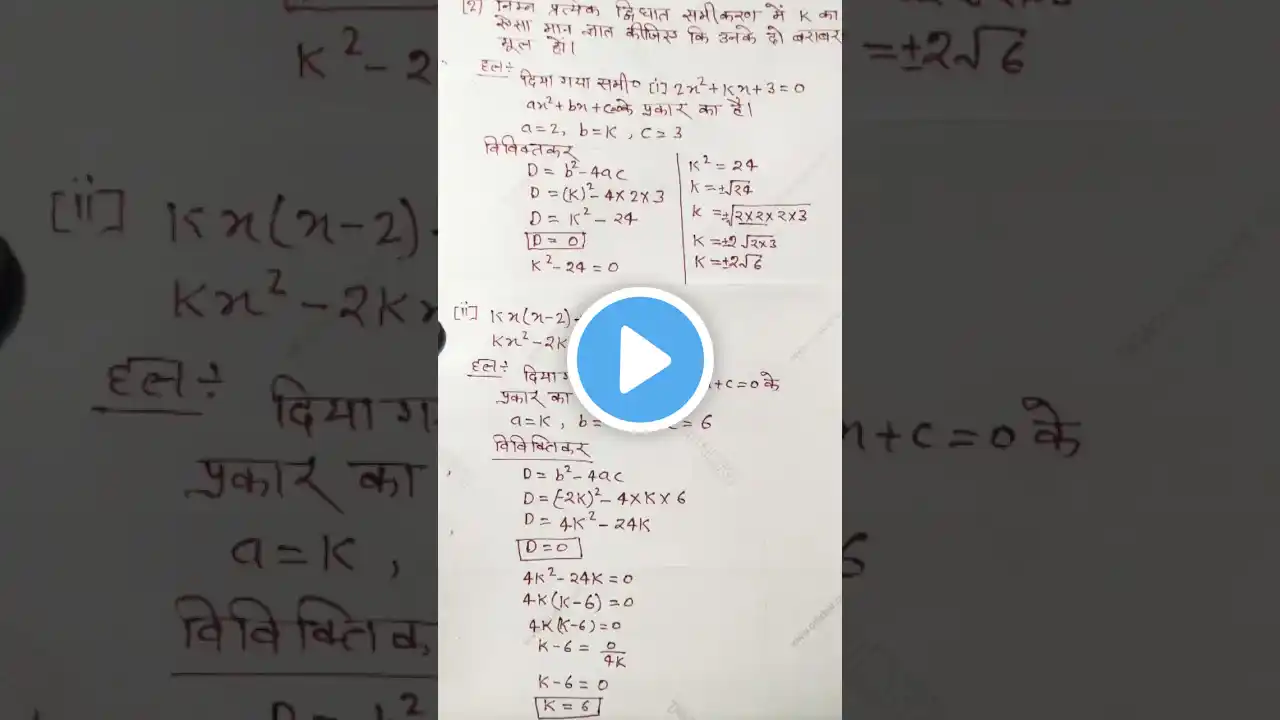 [2] निम्न प्रत्येक द्विघात समीकरण में K का
ऐसा मान ज्ञात कीजिए कि उनके दो बराबर
मूल हों।
हल÷
दिया गया समी० [i] 2x²+Kx+3=0
ax²+bx+c=0के प्रकार का है।
a=2, b=K, c=3
विविक्तिकर
D = b²-4ac
D = (K)²-4×2×3
D = K² - 24
D = 0
K²-24 = 0
K² = 24
K = ±√24
K = ±√2×2×2×3
K = ±2√2×3
K = ±2√6
[ii] Kx(x-2)
Kx²-2K
हल÷
दिया ग
+c=0 के
प्रकार का
a=K, b=
= 6
विविक्तिकर
D = b²-4ac
D = (-2K)²-4×K×6
D = 4K²-24K
D = 0
4K²-24K = 0
4K(K-6) = 0
4K(K-6) = 0
K-6 = 0/4K
K-6 = 0
K = 6